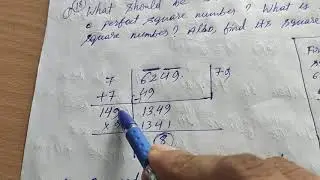 (18) What should be
a perfect square number? What is
square number? Also, find its square
7 6249 79
+7 -49
149 1349
1341
8